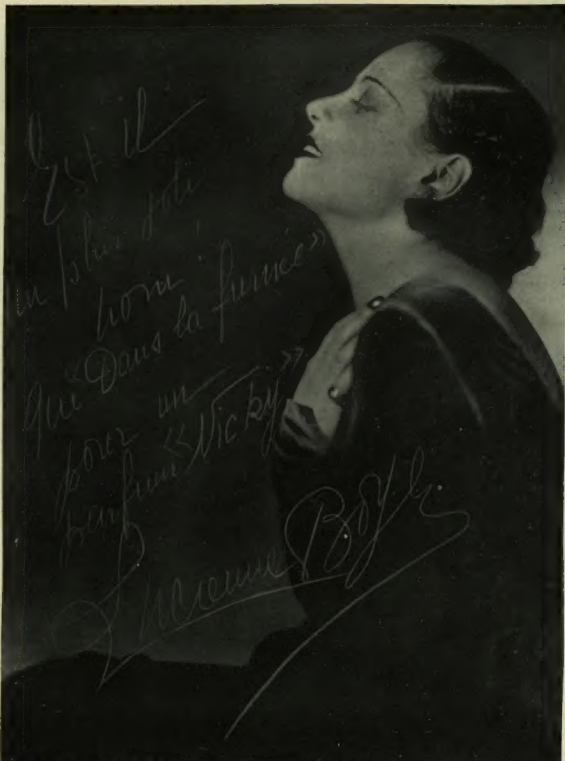 Est il
un plus joli
nom
que "Dans la fumée»
pour un
parfum «Nicky»
Lucienne Boyer